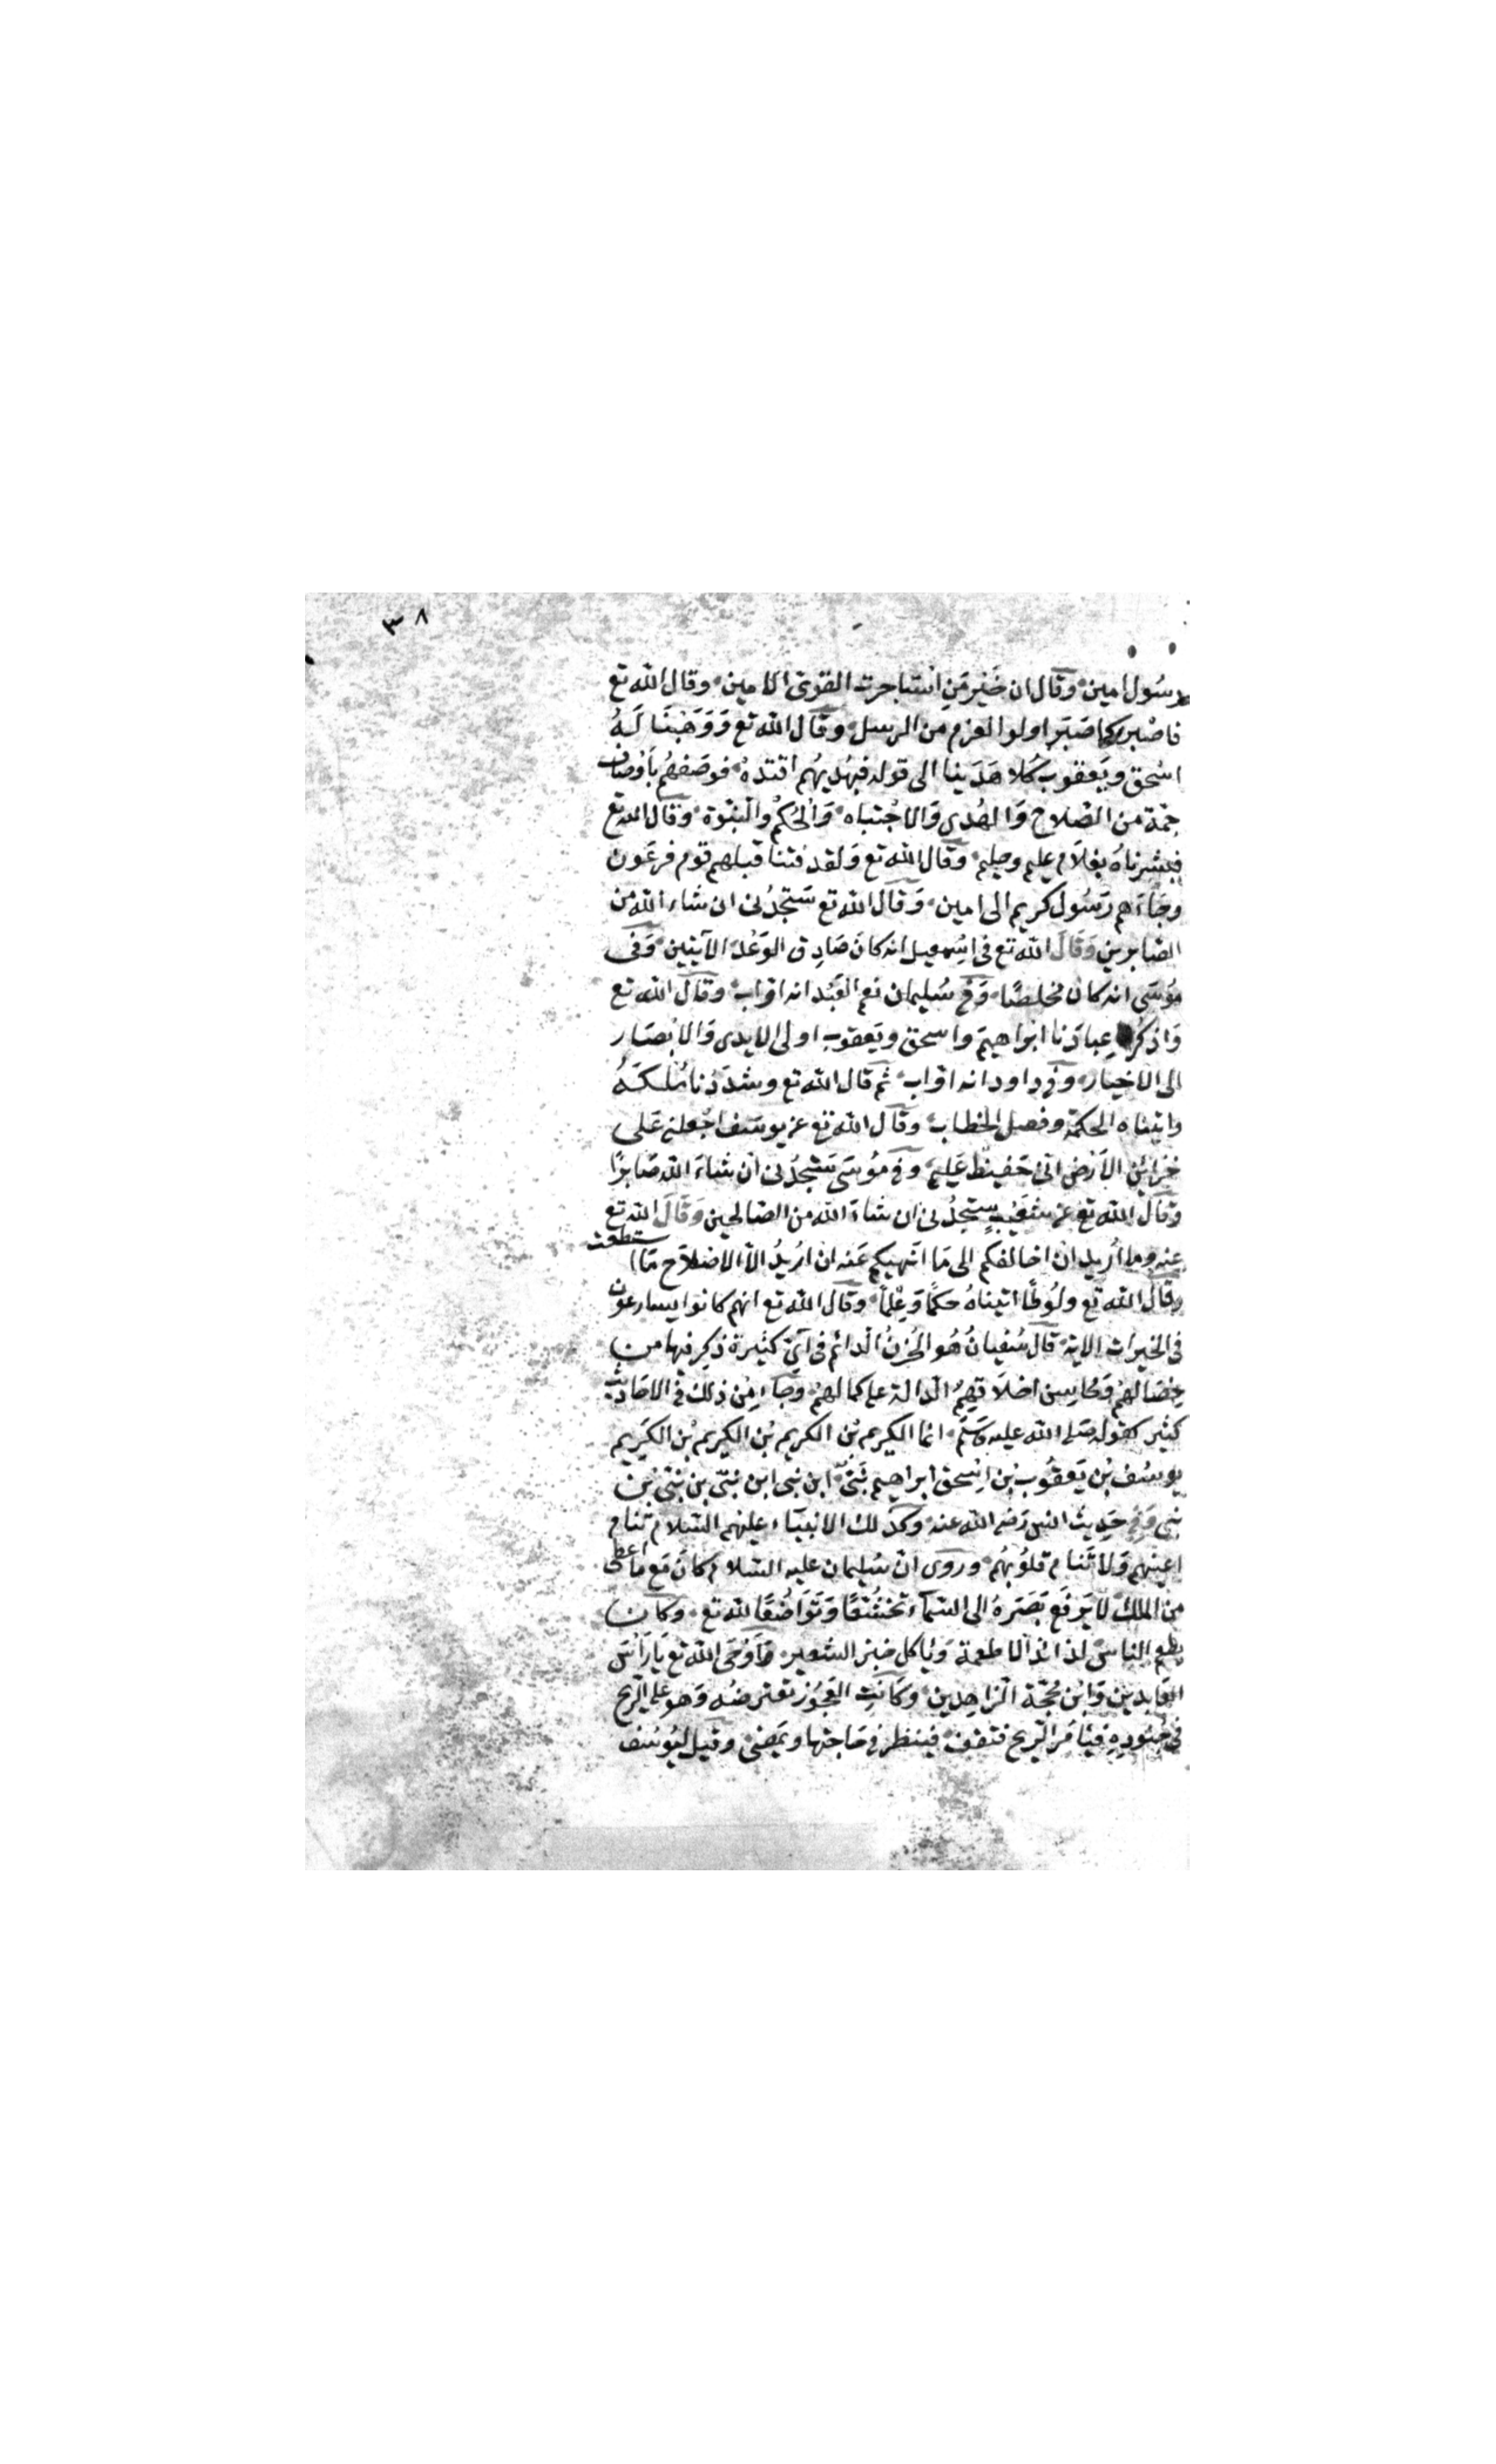 ٣٨
رسُول امين وقال ان خَيْر مَنِ استاجرت القوىّ الامين وقال الله تع
فاصْبر كما صَبَر اولوا العزم من الرسل وقال الله تع وَوَهَبْنَا لَهُ
اسْحق ويَعقوب كلا هَدَينا الى قوله فبهُديهُم اقتدهْ فوصَفهُم بأوْصاف
جمّة من الصّلاح وَالهُدى وَالاجْتباه وَالحُكْم والنبّوة وقال الله تع
فبشرناهُ بغلَام عليم وحليم وقال الله تع وَلقد فتنا قبلهم قوم فرعَون
وجَاءَهم رَسُول كريم الى امين وَقال الله تع سَتجدُنى ان شاء الله من
الصّابرين وَقَالَ الله تع فى اسْمعيل انه كانَ صَادِق الوَعْد الآيتين وَفى
مُوسَى انه كان مُخلصًا وَفى سُليمان نعم العَبْد انه اوّاب وقال الله تع
وَاذكر عِبادَنا ابْراهيمَ واسحق ويَعقوب اولى الايدى وَالابْصَار
الى الاخيار وفى داود انه اوّاب ثم قال الله تع وشدَدْنا مُلكَهُ
واتيناه الحكمة وفصل الخطاب وقال الله تع عن يوسَف اجْعلنى عَلى
خزائن الاَرْض انى حَفيظ عَليم وفى مُوسَى سَتجدُنى ان شاءَ الله صَابرًا
وقال الله تع عن شعَيْب ستجدُنى ان شاءَ الله من الصّالحين وَقَالَ الله تع
عنه وما اُريد ان اخالفكم الى مَا انهيكم عَنه ان اُريدُ الاّ الاصْلاَح مَا استطعت
وقال الله تع ولُوطًا اتيناهُ حكمًا وَعْلمًا وقال الله تع انهم كانوا يسارعون
فى الخيرات الاية قال سُفيانُ هُو الحُزنُ الدائم فى آىٍ كثيرة ذكر فيها من
خِصَالهُم وَمحاسِن اخلاَقِهمُ الدالة على كمالهُمْ وجاء مِن ذلك فى الاحَاديث
كثير كقوله صَلى الله عليه وسَلّم انما الكريم بْن الكريم بْن الكريم بْن الكَريم
يوسُف بْن يَعقُوب بْن اسحق ابراهيم نَبىّ ابن نبى ابن نبىّ بن نبىّ بْن
نبى وَفى حَديث انس رَضى الله عنه وكذَلك الانبيَاء عليهم السّلام تنام
اعينهم وَلاَ تَنام قلوُبهُم ورُوى انّ سُليمان عليه السّلام كان مَع ما اعطى
من الملك لا يَرفَع بَصَرَهُ الى السّماَء تخشّعًا وَتَوَاضُعًا لله تع وكان
يطعم الناسَ لذائذ الاطعمة وَياكل خبز الشعير وَاَوْحَى الله تع يَارَأسَ
العَابدين وَابْن مُحجّة الزاهِدين وَكَانتِ العَجُوز تعترضُه وَهو على الريح
فى جُنودِهِ فيَا مَر الرّيح فتقف فينظر فى حَاجتها ويَمضى وقيل ليُوسُف